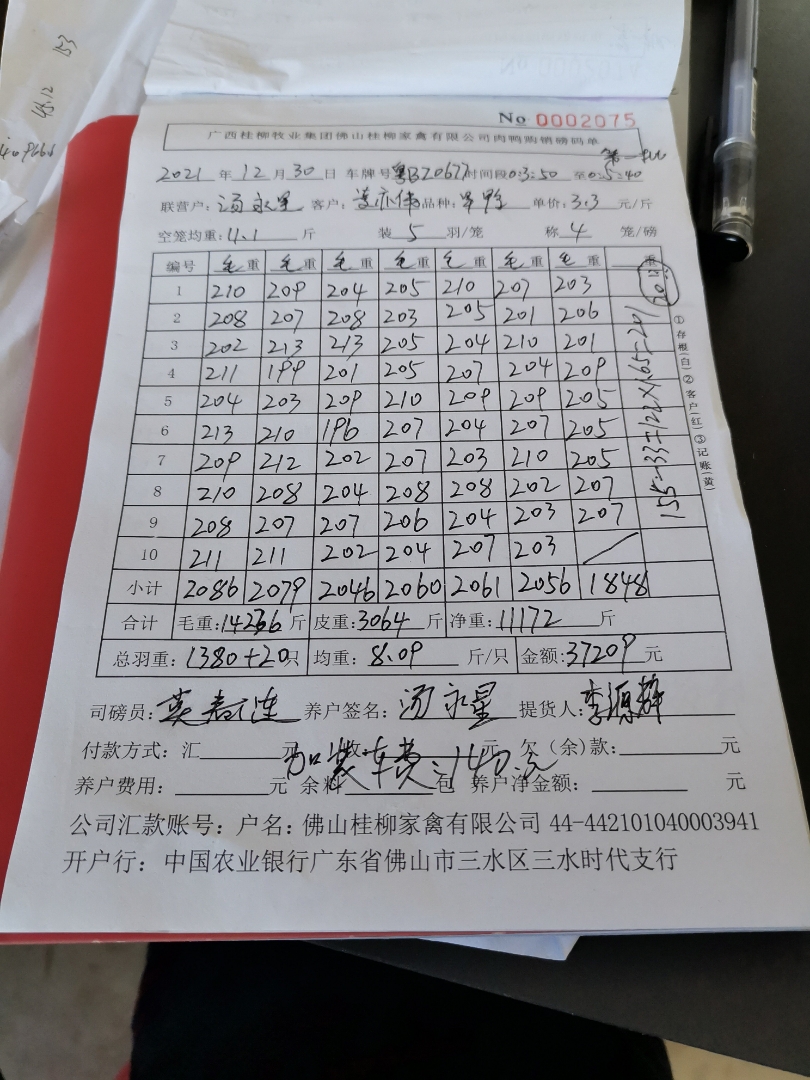 153
45.12
No 0002075
广西桂柳牧业集团佛山桂柳家禽有限公司肉鸭购销磅码单
第一
2021 年 12 月 30 日 车牌号粤BZ0677时间段0:3:50 至0:5:40
联营户:汤永星 客户: 亦伟品种: 单价:3.3 元/斤
空笼均重:11.1 斤 装 5 羽/笼 称 4 笼/磅
编号 毛重 毛重 毛重 毛重 毛重 毛重 毛重 重
1 210 209 204 205 210 207 203
2 208 207 208 203 205 201 206
3 202 213 213 205 204 210 201
4 211 199 201 205 207 204 209
5 204 203 209 210 209 209 205
6 213 210 196 207 204 207 205
7 209 212 202 207 203 210 205
8 210 208 204 208 208 202 207
9 208 207 207 206 204 203 207
10 211 211 202 204 207 203
小计 2086 2079 2046 2060 2061 2056 1848
合计 毛重:14236 斤 皮重:3064 斤 净重:11172 斤
总羽重:1380+20只 均重:8.09 斤/只 金额:37209 元
155-33=122×1.65=201
①存根(白)②客户(红)③记账(黄)
司磅员: 养户签名:汤永星 提货人:李源辉
付款方式:汇 元 收 元 欠(余)款: 元
加装车费:140元
养户费用: 元 余料 包 养户净金额: 元
公司汇款账号:户名:佛山桂柳家禽有限公司 44-442101040003941
开户行:中国农业银行广东省佛山市三水区三水时代支行